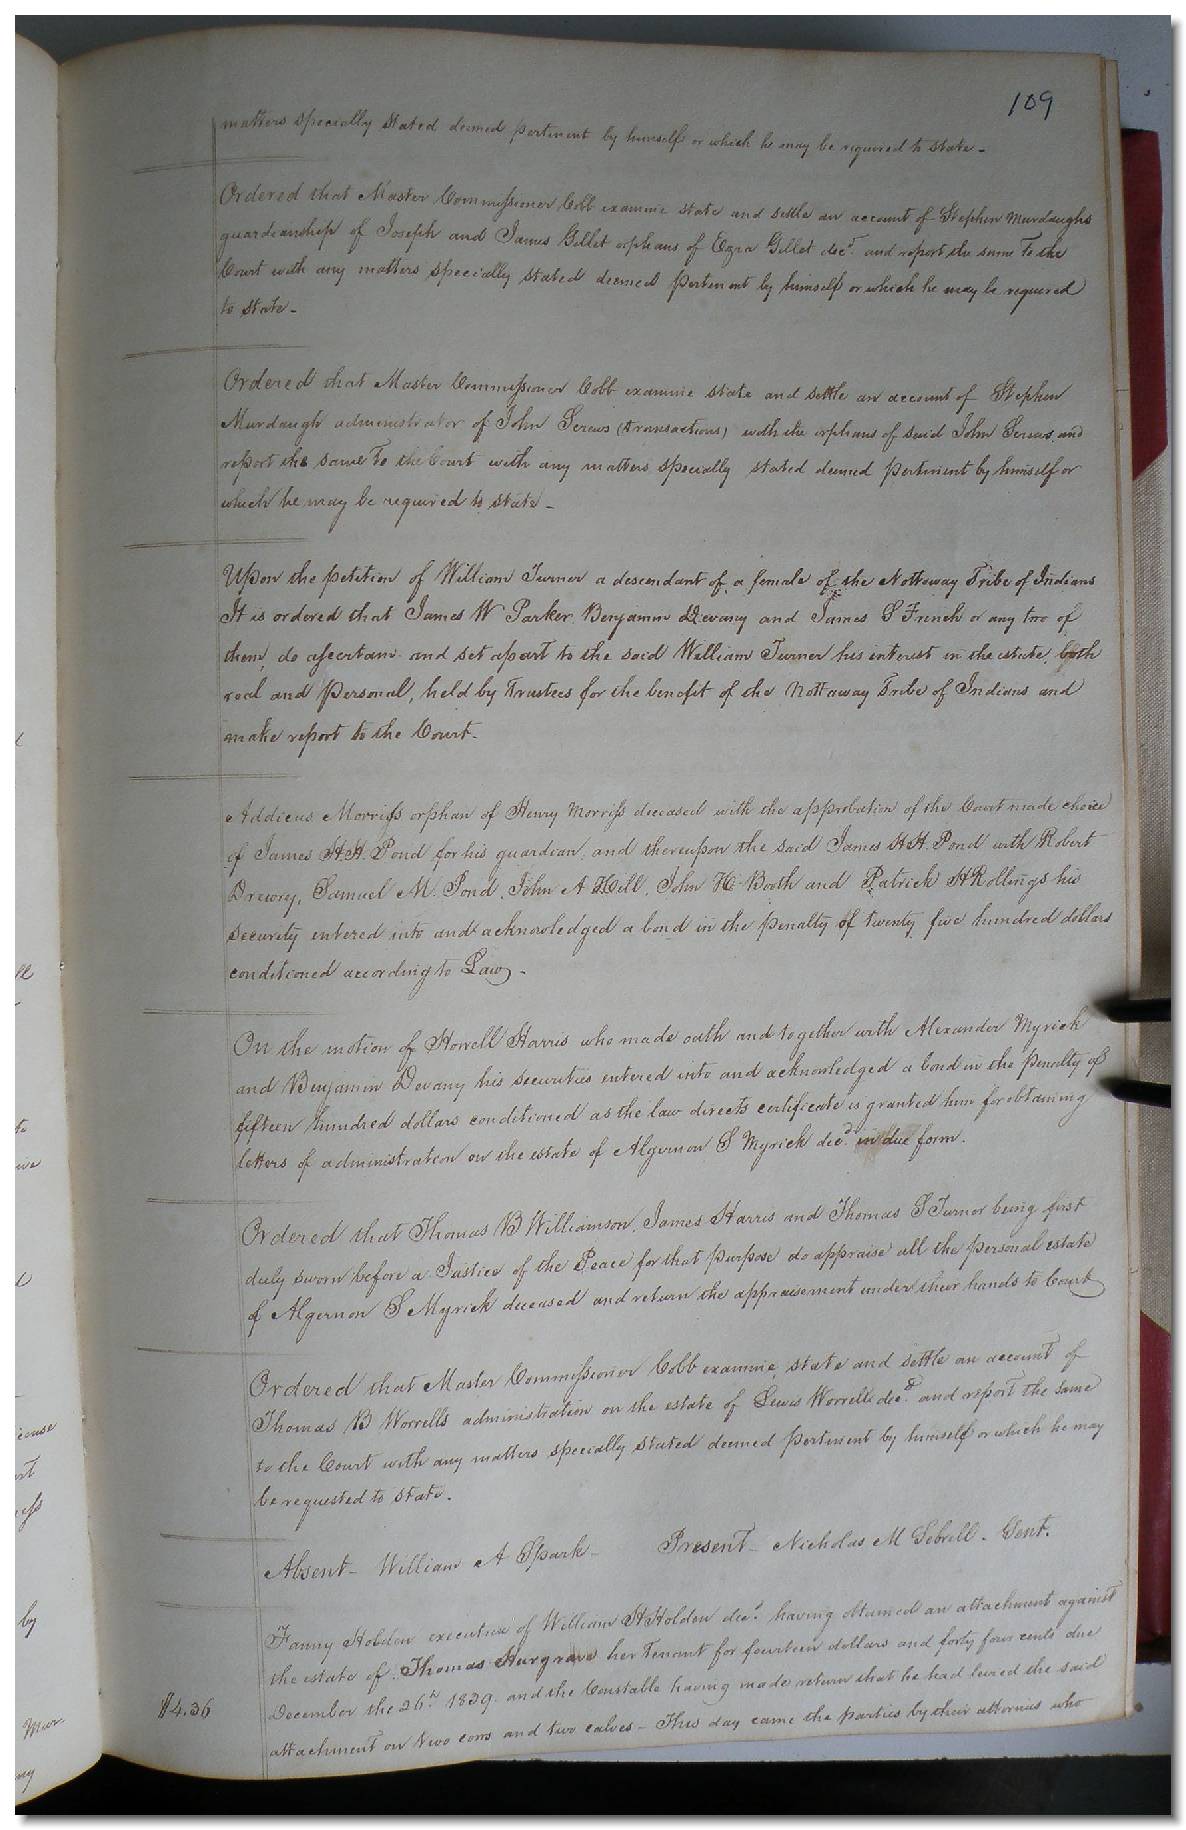 109
matters specially stated deemed pertinent by himself or which he may be required to state -
Ordered that Master Commissioner Cobb examine state and settle an account of Stephen Murdaughs
guardianship of Joseph and James Gillet orphans of Ezra Gillet decd. and report the same to the
Court with any matters specially stated deemed pertinent by himself or which he may be required
to state -
Ordered that Master Commissioner Cobb examine state and settle an account of Stephen
Murdaugh administrator of John Screws (transactions) with the orphans of said John Screws and
report the same to the Court with any matters specially stated deemed pertinent by himself or
which he may be required to state -
Upon the petition of William Turner a descendant of a female of the Nottoway Tribe of Indians
It is ordered that James W Parker, Benjamin Devany and James S French or any two of
them, do ascertain and set apart to the said William Turner his interest in the estate, both
real and personal, held by Trustees for the benefit of the Nottaway Tribe of Indians and
make report to the Court -
Addicus Morriss orphan of Henry Morriss deceased with the approbation of the Court made choice
of James H.H. Pond for his guardian, and thereupon the said James H.H. Pond with Robert
Drewry, Samuel M. Pond, John A Hill, John H. Booth and Patrick H Rollings his
security entered into and acknowledged a bond in the penalty of twenty five hundred dollars
conditioned according to Law -
On the motion of Howell Harris who made oath and together with Alexander Myrick
and Benjamin Devany his securities entered into and acknowledged a bond in the penalty of
fifteen hundred dollars conditioned as the law directs certificate is granted him for obtaining
letters of administration on the estate of Algernon S Myrick decd. in due form.
Ordered that Thomas B Williamson, James Harris and Thomas S Turner being first
duly sworn before a Justice of the Peace for that purpose do appraise all the personal estate
of Algernon S Myrick deceased and return the appraisement under their hands to Court
Ordered that Master Commissioner Cobb examine, state and settle an account of
Thomas B Worrells administration on the estate of Lewis Worrell decd. and report the same
to the Court with any matters specially stated deemed pertinent by himself or which he may
be requested to state.
Absent - William A Spark - Present - Nicholas M Sebrell - Gent.
Fanny Holden executrix of William H Holden decd. having obtained an attachment against
the estate of Thomas Hargrave her Tenant for fourteen dollars and forty four cents due
December the 26th 1839. and the Constable having made return that he had levied the said
$4.36
attachment on two cows and two calves - This day came the parties by their attornies who